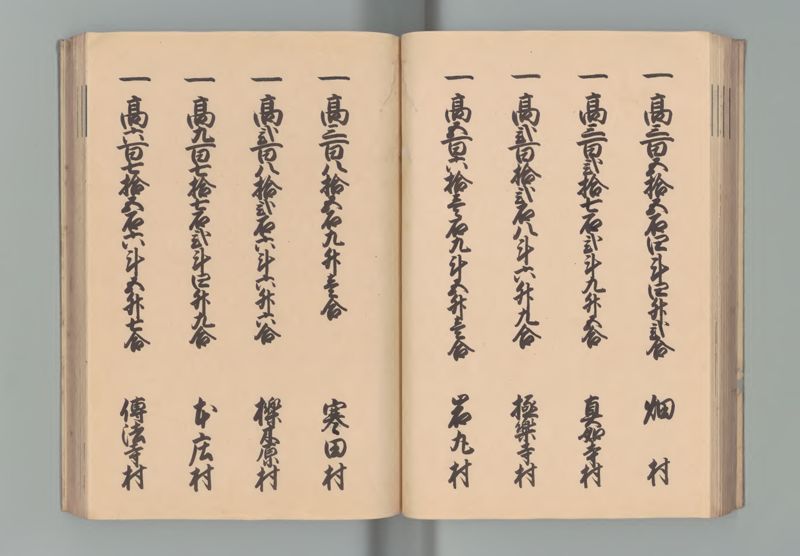 一 高三百五拾五石四斗四升弐合 畑村
一 高三百弐拾七石弐斗九升五合 真如寺村
一 高弐百拾弐石八斗六升九合 極楽寺村
一 高五百六拾壱石九斗五升壱合 岩丸村
一 高三百八拾五石九升壱合 寒田村
一 高弐百八拾弐石六斗六升六合 櫟原村
一 高九百七拾七石弐斗四升九合 本庄村
一 高六百七拾五石六斗五升七合 傳法寺村